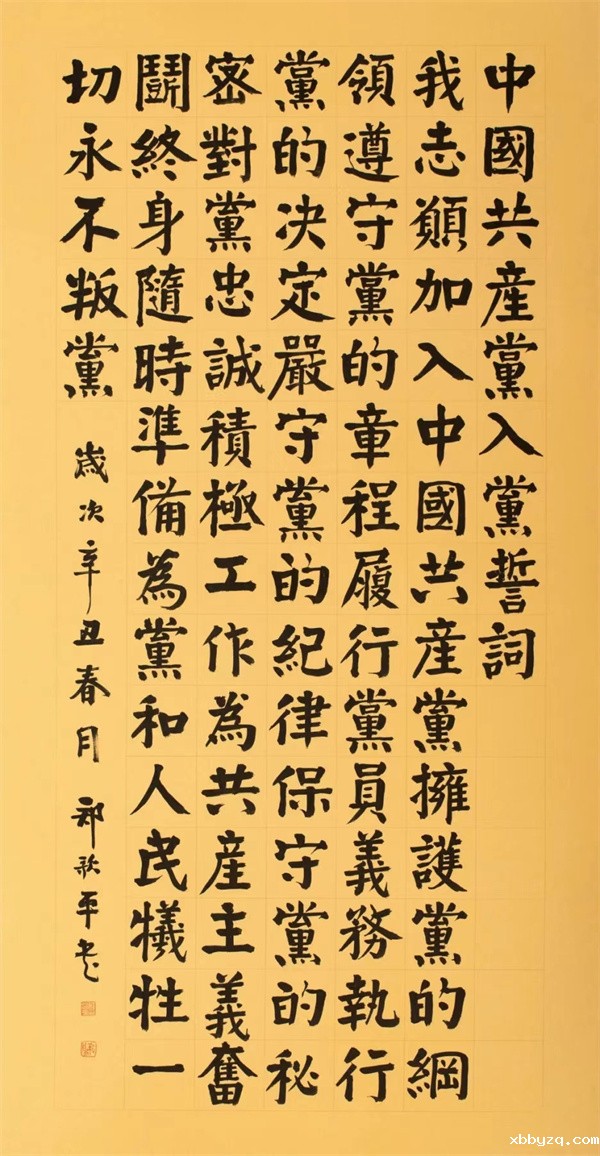 中國共産黨入黨誓詞
我志願加入中國共産黨擁護黨的綱
領遵守黨的章程履行黨員義務執行
黨的决定嚴守黨的紀律保守黨的秘
密對黨忠誠積極工作為共産主義奮
鬭終身隨時準備為黨和人民犧牲一
切永不叛黨 歲次辛丑春月 郑平书
xbbyzq.com